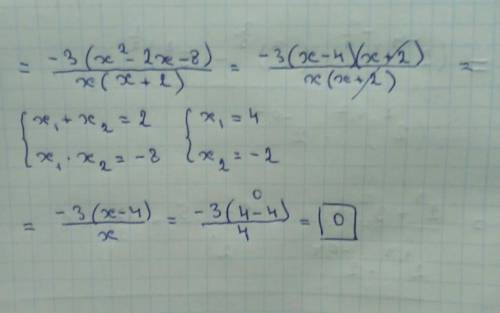 = -3(x² - 2x - 8) / x(x + 2) = -3(x - 4)(x + 2) / x(x + 2) =
{ x₁ + x₂ = 2 { x₁ = 4
{ x₁ · x₂ = -8 { x₂ = -2
= -3(x - 4) / x = -3(4 - 4) / 4 = 0
0